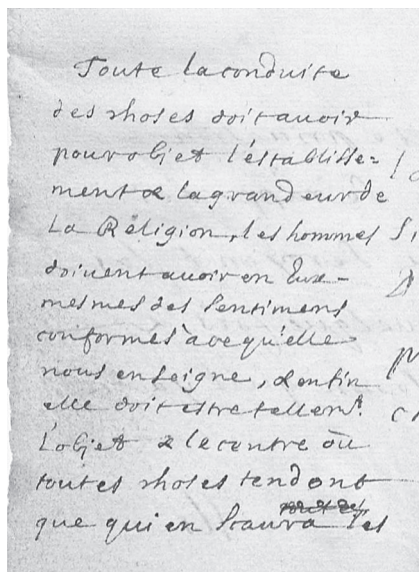 Toute la conduite
des choses doit avoir
pour objet l'establisse=
ment & la grandeur de
La Religion, les hommes
doivent avoir en Eux-
mesmes des sentimens
conformes à ce qu'elle
nous enseigne, & enfin
elle doit estre tellemt.
L'objet & le centre où
toutes choses tendent
que qui en Scaura les